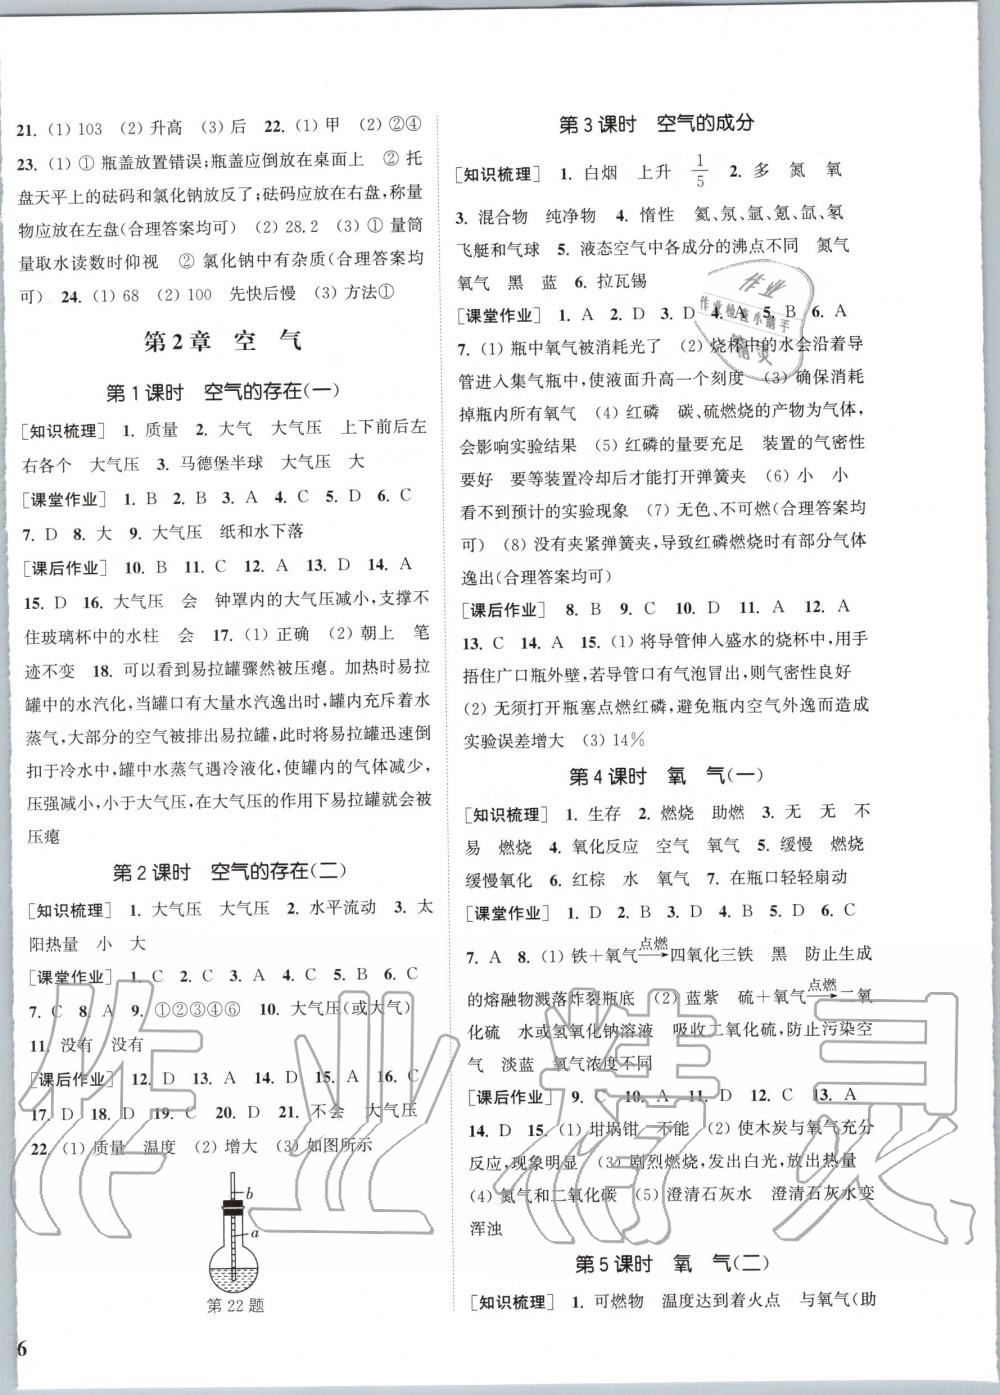 21. (1) 103 (2) 升高 (3) 后 22. (1) 甲 (2) ②④
23. (1) ① 瓶盖放置错误;瓶盖应倒放在桌面上 ② 托
盘天平上的砝码和氯化钠放反了;砝码应放在右盘,称量
物应放在左盘(合理答案均可) (2) 28.2 (3) ① 量筒
量取水读数时仰视 ② 氯化钠中有杂质(合理答案均
可) 24. (1) 68 (2) 100 先快后慢 (3) 方法①
第2章 空 气
第1课时 空气的存在(一)
[知识梳理] 1. 质量 2. 大气 大气压 上下前后左
右各个 大气压 3. 马德堡半球 大气压 大
[课堂作业] 1. B 2. B 3. A 4. C 5. D 6. C
7. D 8. 大 9. 大气压 纸和水下落
[课后作业] 10. B 11. C 12. A 13. D 14. A
15. D 16. 大气压 会 钟罩内的大气压减小,支撑不
住玻璃杯中的水柱 会 17. (1) 正确 (2) 朝上 笔
迹不变 18. 可以看到易拉罐骤然被压瘪。加热时易拉
罐中的水汽化,当罐口有大量水汽逸出时,罐内充斥着水
蒸气,大部分的空气被排出易拉罐,此时将易拉罐迅速倒
扣于冷水中,罐中水蒸气遇冷液化,使罐内的气体减少,
压强减小,小于大气压,在大气压的作用下易拉罐就会被
压瘪
第2课时 空气的存在(二)
[知识梳理] 1. 大气压 大气压 2. 水平流动 3. 太
阳热量 小 大
[课堂作业] 1. C 2. C 3. A 4. C 5. D 6. C
7. C 8. A 9. ①②③④⑥ 10. 大气压(或大气)
11. 没有 没有
[课后作业] 12. D 13. A 14. D 15. A 16. C
17. D 18. D 19. C 20. D 21. 不会 大气压
22. (1) 质量 温度 (2) 增大 (3) 如图所示
b
a
第22题
6
第3课时 空气的成分
[知识梳理] 1. 白烟 上升 1/5 2. 多 氮 氧
3. 混合物 纯净物 4. 惰性 氦、氖、氩、氪、氙、氡
飞艇和气球 5. 液态空气中各成分的沸点不同 氮气
氧气 黑 蓝 6. 拉瓦锡
[课堂作业] 1. A 2. D 3. D 4. A 5. B 6. A
7. (1) 瓶中氧气被消耗光了 (2) 烧杯中的水会沿着导
管进入集气瓶中,使液面升高一个刻度 (3) 确保消耗
掉瓶内所有氧气 (4) 红磷 碳、硫燃烧的产物为气体,
会影响实验结果 (5) 红磷的量要充足 装置的气密性
要好 要等装置冷却后才能打开弹簧夹 (6) 小 小
看不到预计的实验现象 (7) 无色、不可燃(合理答案均
可) (8) 没有夹紧弹簧夹,导致红磷燃烧时有部分气体
逸出(合理答案均可)
[课后作业] 8. B 9. C 10. D 11. A 12. A
13. C 14. A 15. (1) 将导管伸入盛水的烧杯中,用手
捂住广口瓶外壁,若导管口有气泡冒出,则气密性良好
(2) 无须打开瓶塞点燃红磷,避免瓶内空气外逸而造成
实验误差增大 (3) 14%
第4课时 氧 气(一)
[知识梳理] 1. 生存 2. 燃烧 助燃 3. 无 无 不
易 燃烧 4. 氧化反应 空气 氧气 5. 缓慢 燃烧
缓慢氧化 6. 红棕 水 氧气 7. 在瓶口轻轻扇动
[课堂作业] 1. D 2. B 3. D 4. D 5. D 6. C
7. A 8. (1) 铁+氧气 点燃→ 四氧化三铁 黑 防止生成
的熔融物溅落炸裂瓶底 (2) 蓝紫 硫+氧气 点燃→ 二氧
化硫 水或氢氧化钠溶液 吸收二氧化硫,防止污染空
气 淡蓝 氧气浓度不同
[课后作业] 9. C 10. A 11. D 12. C 13. A
14. D 15. (1) 坩埚钳 不能 (2) 使木炭与氧气充分
反应,现象明显 (3) 剧烈燃烧,发出白光,放出热量
(4) 氮气和二氧化碳 (5) 澄清石灰水 澄清石灰水变
浑浊
第5课时 氧 气(二)
[知识梳理] 1. 可燃物 温度达到着火点 与氧气(助
作业
作业检查小助手
精灵
作业精灵